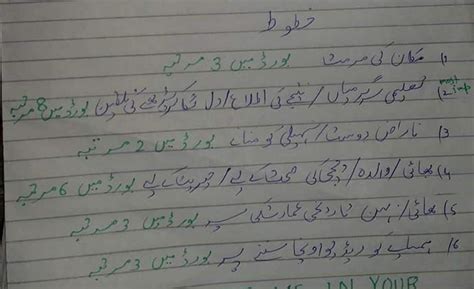 خطوط
1) مکان کی مرمت بورڈ میں 3 مرتبہ
2) تعلیمی سرگرمیاں / نتیجے کی اطلاع / دل لگا کر پڑھنے کی تلقین بورڈ میں 8 مرتبہ
3) ناراض دوست / سہیلی کو منانا بورڈ میں 2 مرتبہ
4) بھائی / والدہ / چچی کی صحت کے لیے / کے لیے بورڈ میں 6 مرتبہ
5) بھائی / بہن تاریخی عمارت کی سیر بورڈ میں 3 مرتبہ
6) ریڈیو اونچا سننے پر بورڈ میں 3 مرتبہ
IN YOUR